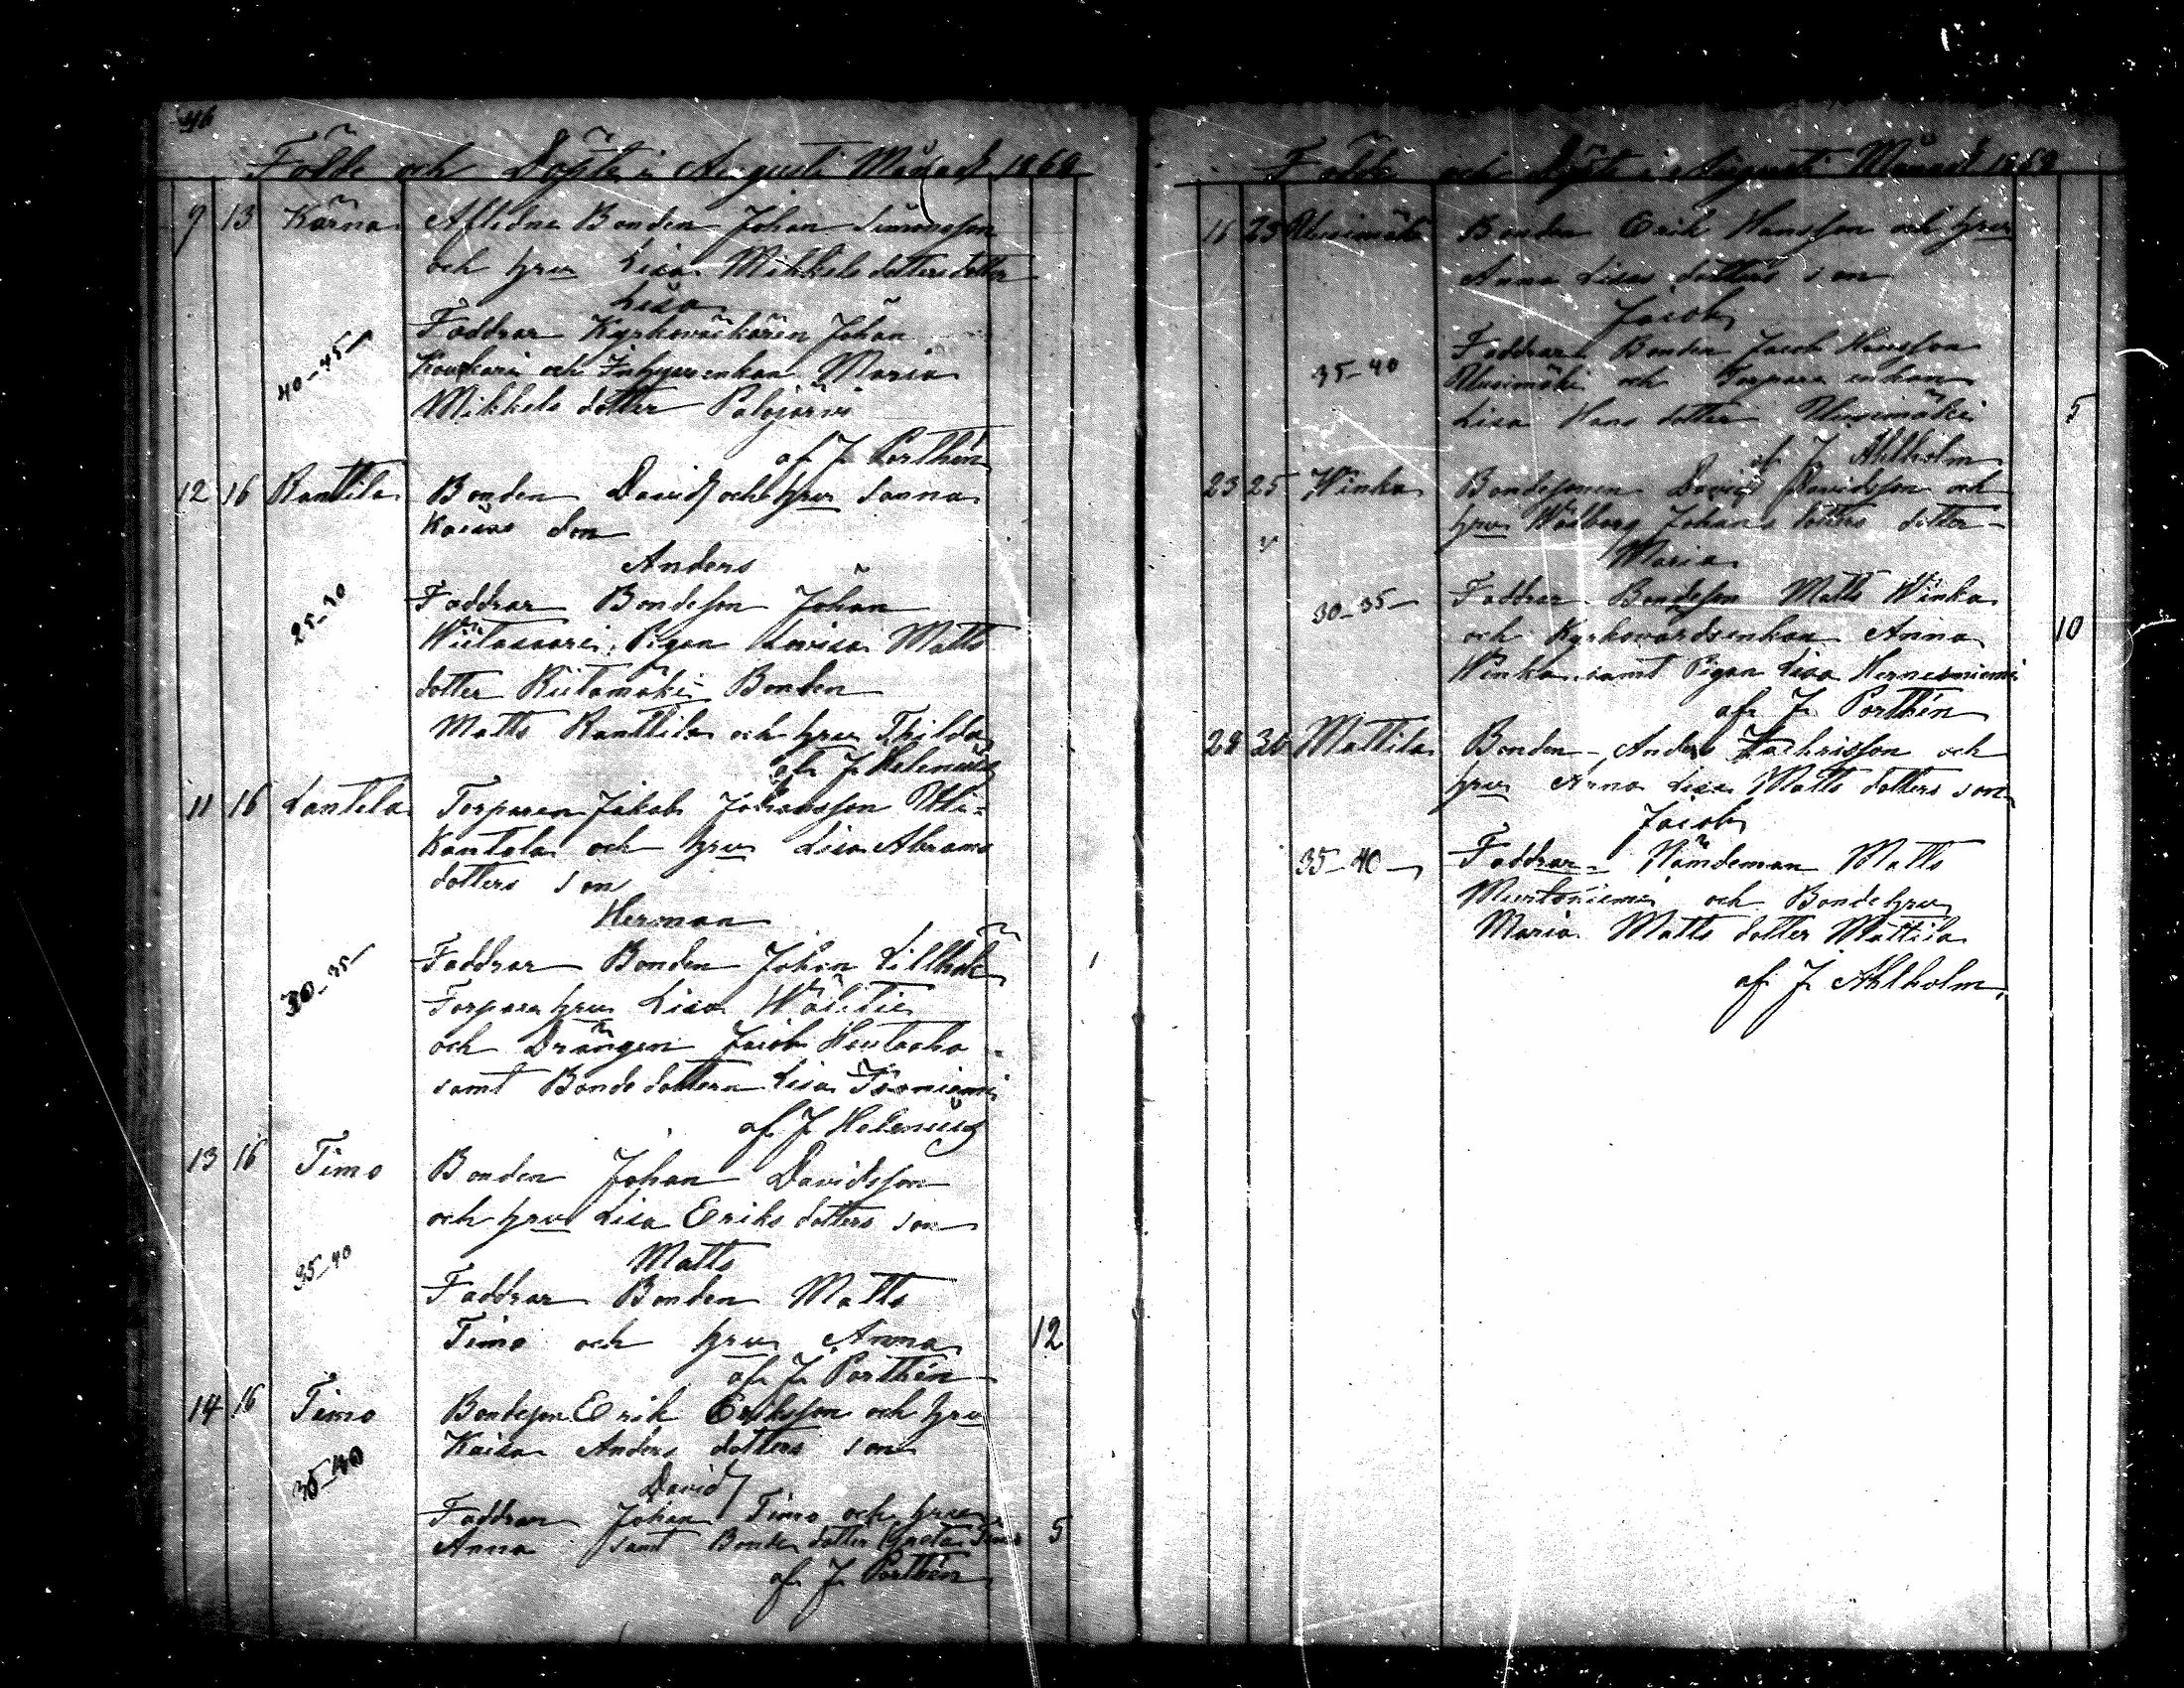 46
Födde och Döpte i Augusti Månad 1868
9 13 Kärna Aflidne Bonden Johan Simonsson
och hru Lisa Mikkels dotters dotter
Lisa
40-45 Faddrar Kyrkoväktaren Johan
och Inhysenkan Maria
Mikkels dotter Palojärvi
af J. Porthén
12 16 Ranttila Bonden David och hru Sanna
Kaisas son
Anders
25-30 Faddrar Bondeson Johan
Wiitasaari, Pigan Lovisa Matts
dotter Riitamäki Bonden
Matts Ranttila och hru Thilda
af J. Helenius
11 16 Lantela Torparen Jakob Johansson Yli-
Kantola och hru Lisa Abrams
dotters son
Herman
30-35 Faddrar Bonden Johan Lillbäk
Torpare hru Lisa Wälitie
och Drängen Jacob Hautaaho
samt Bonde dottern Lisa Isoniemi
af J Helenius
13 16 Timo Bonden Johan Davidsson
och hru Lisa Eriks dotters son
Matts
35-40 Faddrar Bonden Matts
Timo och hru Anna 12
af J. Porthén
14 16 Timo Bondeson Erik Eriksson och hru
Kaisa Anders dotters son
David
35-40 Faddrar Johan Timo och hru
Anna samt Bonde dotter Greta Timo 5
af J. Porthén
Födde och Döpte i Augusti Månad 1868
16 23 Uusimäki Bonden Erik Hansson och hru
Anna Lisas dotters son
Jacob
35-40 Faddrar Bonden Jacob Hansson
Uusimäki och Torpare enkan
Lisa Hans dotter Uusimäki 5
af J. Ahlholm
23 25 Winka Bondesonen David Davidsson och
hru Wålborg Johans dotters dotter
Maria
30-35 Faddrar Bondeson Matts Winka
och Kyrkovärdsenkan Anna 10
Winka samt Pigan Lisa Hernesniemi
af J. Porthén
28 30 Mattila Bonden Anders Zachrisson och
hru Anna Lisa Matts dotters son
Jacob
35-40 Faddrar Nämdeman Matts
Murtoniemi och Bonde hru
Maria Matts dotter Mattila
af J. Ahlholm